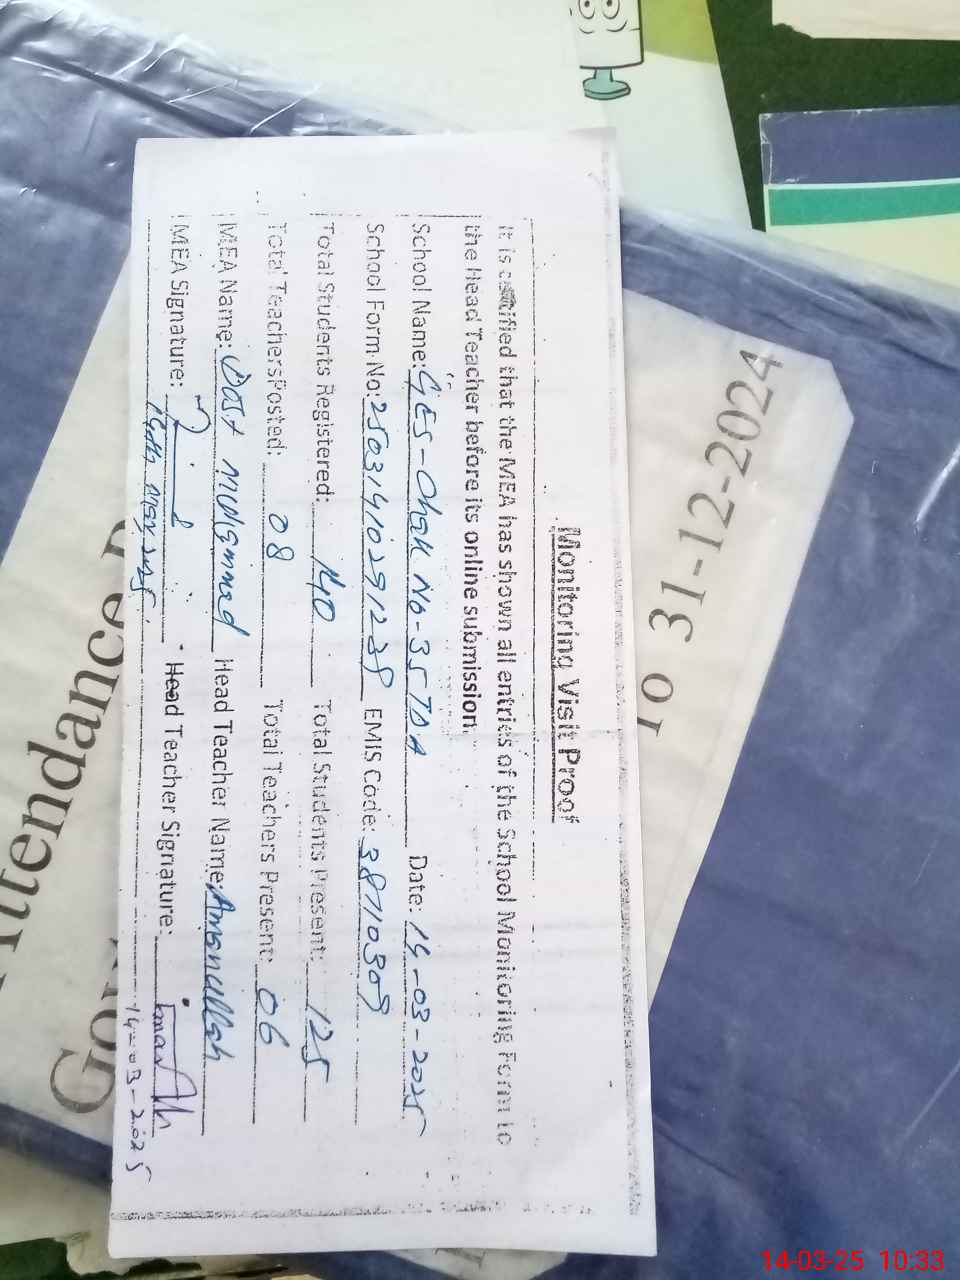 Monitoring Visit Proof
It is certified that the MEA has shown all entries of the School Monitoring Form to
the Head Teacher before its online submission.
School Name: GES-Chak No-35TDA Date: 14-03-2025
School Form No: 25031410291239 EMIS Code: 38710309
Total Students Registered: 140 Total Students Present: 125
Total Teachers Posted: 08 Total Teachers Present: 06
MEA Name: Dost Muhammad Head Teacher Name: Amanullah
MEA Signature: Head Teacher Signature:
14-03-2025
To 31-12-2024
Attendance
14-03-25 10:33